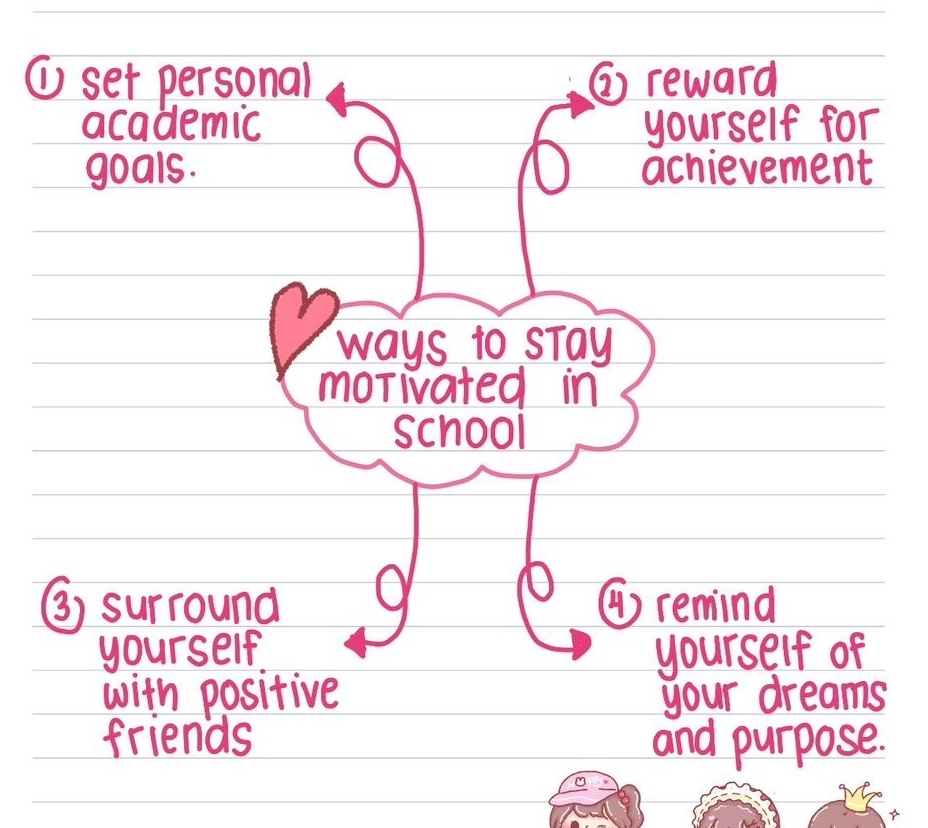 ① set personal
academic
goals.
② reward
yourself for
achievement
ways to stay
motivated in
school
③ surround
yourself
with positive
friends
④ remind
yourself of
your dreams
and purpose.